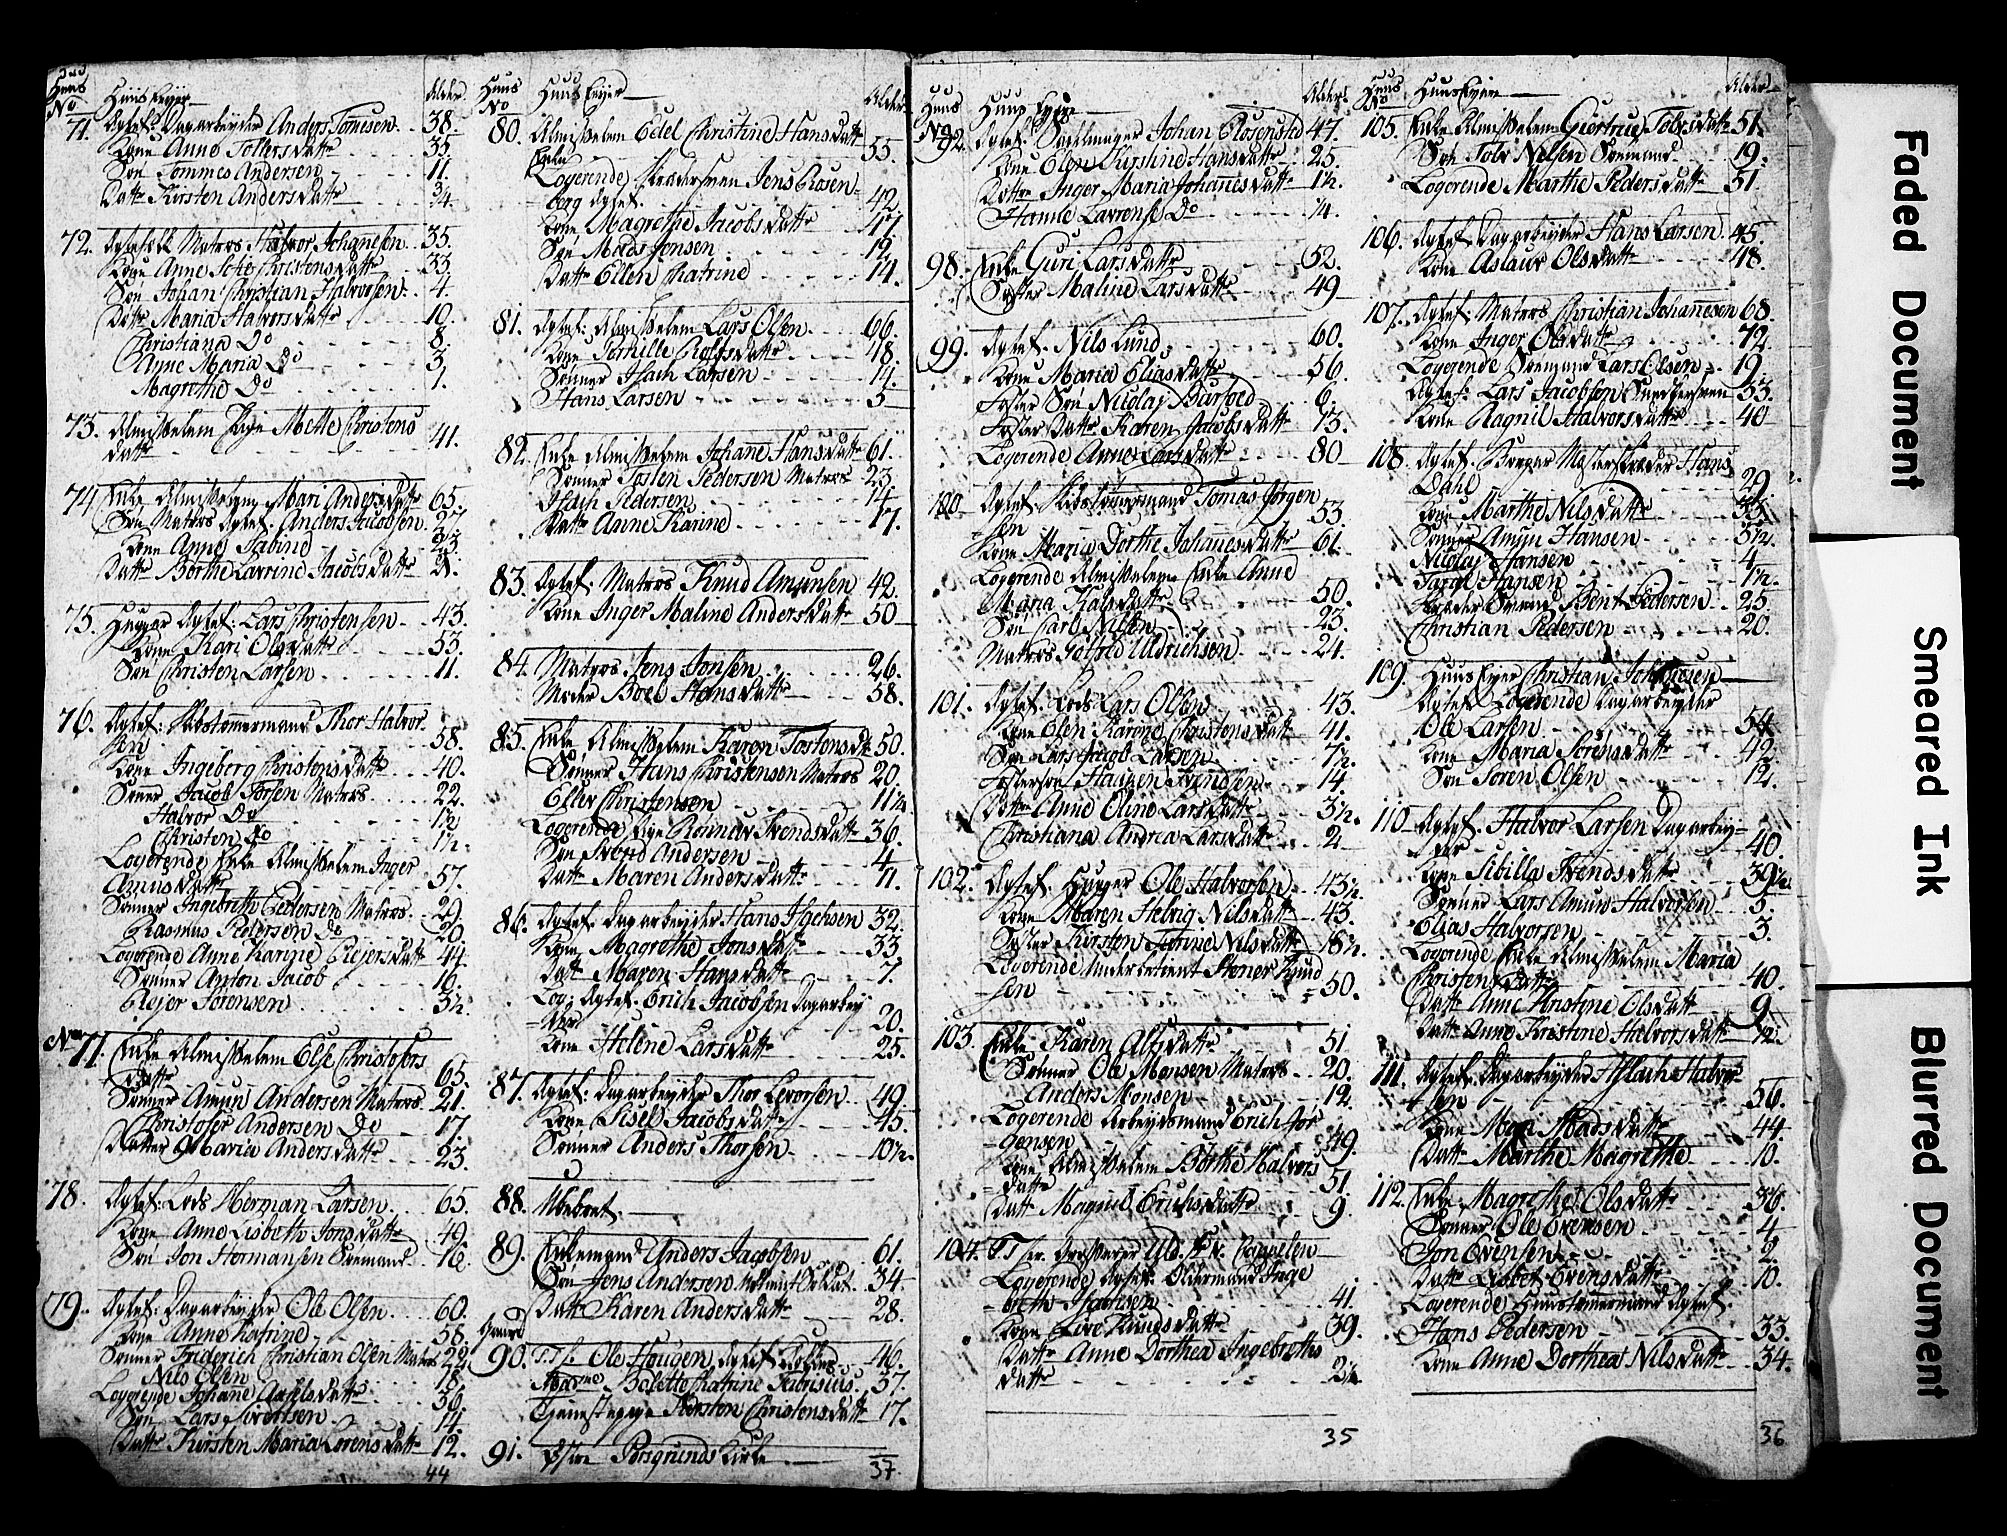 Huus No Huus Eyer Alder
71. Ægtef: Dagarbeyder Anders Tomesen 38.
Kone Anne Tollersdatter 35
Søn Tommes Andersen 11.
Datter Kirsten Andersdatter 3/4.
72. Ægtefolk Matros Halvor Johanesen 35.
Kone Anne Christensdatter 33.
Søn Johan Christian Halvorsen 4
Døttre Maria Halvorsdatter 10.
Christiana Do 8.
Anne Maria Do 3.
Magrethe Do 1.
73. Almisselem Pige Mette Christens
datter 41.
74 Enke Almisselem Mari Andersdatter 65
Søn Matros Ægtef. Anders Jacobsen 27
Kone Anne Sabine 23.
Datter Børthe Lavrine Jacobsdatter 21.
75. Hugger Ægtef: Lars Christensen 43.
Kone Kari Olsdatter 53.
Søn Christen Larsen 11.
76. Ægtef: Skibstømmermand Thor Halvor-
sen 58.
Kone Ingeberg Christensdatter 40.
Sønner Jacob Torsen Matros 22.
Halvor Do
Christen Do 1 1/2.
Logerende Enke Almisselem Inger
Amunsdatter 57.
Sønner Ingebreth Pedersen Matros 29.
Rasmus Pedersen Do 20
Logerende Anne Karine Reyersdatter 44
Sønner Anton Jacob 16.
Rejer Sørensen 3 1/2.
No 77. Enke Almisselem Else Christofers
datter 65.
Sønner Amun Andersen Matros 21.
Christofer Andersen Do 17
Datter Maria Andersdatter 23.
78. Ægtef: Lods Herman Larsen 65.
Kone Anne Lisbeth Jonsdatter 49.
Søn Jon Hermansen Søemand 16
79. Ægtef: Dagarbeyder Ole Olsen 60.
Kone Anne Katrine 58.
Sønner Friderich Christian Olsen Matros 22
Nils Olsen 18.
Logerende Johane Axelsdatter 36.
Søn Lars Sivertsen 14.
Datter Kirsten Maria Lorensdatter 12.
44
Huus No Huus Eyer Alder
80. Almisselem Edel Christine Hansdatter
Enke 55.
Logerende Skrædersvend Jens Rosen-
berg Ægtef. 42
Kone Magrethe Jacobsdatter 47.
Søn Mads Jensen 19.
Datter Ellen Chatrine 14.
81. Ægtef: Almisselem Lars Olsen 66
Kone Pernille Rolfsdatter 48.
Sønner Isach Larsen 14
Hans Larsen 5
82. Enke Almisselem Johane Hansdatter 61.
Sønner Tosten Pedersen Matros 23
Isach Pedersen 14
Datter Anne Karine 17.
83. Ægtef: Matros Knud Amunsen 42.
Kone Inger Maline Andersdatter 50
84. Matros Jens Jonsen 26.
Moder Boel Hansdatter 58.
85. Enke Almisselem Karen Tostensdt 50.
Sønner Hans Christensen Matros 20.
Eller Christensen 11 1/2
Logerende Pige Rønnav Svendsdatter 36.
Søn Svend Andersen 4
Datter Maren Andersdatter 11.
86. Ægtef: Dagarbeyder Hans Isachsen 32.
Kone Magrethe Jonsdatter 33.
Datter Maren Hansdatter 7.
Log: Ægtef. Erich Jacobsen Dagarbey
der 20.
Kone Helene Larsdatter 25.
87. Ægtef: Dagarbeyder Thor Levorsen 49.
Kone Sisel Jacobsdatter 45.
Sønner Anders Thorsen 10 1/2.
88. Ubeboet.
89. Enkemand Anders Jacobsen 61.
Søn Jens Andersen Soldat 34
Datter Karen Andersdatter 28.
Gaard
90. Ole Hougen Ægtef. 46.
Madme Bolette Katrine Fabrisius 37.
Tjenestepige Kirsten Christensdatter 17.
91. Østre Porsgrunds Kirke
37.
Huus No Huus Eyere Alder
92. Ægtef: Sadelmager Johan Rosensted 47.
Kone Olene Kirstine Hansdatter 25.
Døttre Inger Maria Johanesdatter 1 1/2.
Lavrense Do 1/4.
98. Enke Guri Larsdatter 52.
Søster Maline Larsdatter 49
99. Ægtef. Nils Lund 60.
Kone Maria Eliasdatter 56.
Foster Søn Nicolaj Barfoed 6.
Foster Datter Karen Jacobsdatter 13.
Logerende Anne Larsdatter 80
100 Ægtef: Skibstømmermand Tomas Jørgen
sen 53.
Kone Maria Dorthe Johanesdatter 61.
Logerende Almisselem Enke Anne
Maria Kalsdatter 50.
Søn Carl Nilsen 23.
Matros Uldrichsen 21.
101. Ægtef: Lods Lars Olsen 43.
Kone Olen Karene Christensdatter 41.
Søn Lars Jacob Larsen 7 1/2.
Fostersøn Hansen Svendsen 14
Døttre Anne Oline Larsdatter 3 1/2.
Christiana Andrea Larsdatter 2
102. Ægtef. Hugger Ole Halvorsen 43 1/2.
Kone Maren Helvig Nilsdatter 43.
Søster Kirsten Torine Nilsdatter 18 1/2.
Logerende Underbetient Stener Knud
sen 50.
103. Enke Karen Alfsdatter 51.
Sønner Ole Monsen Matros 20.
Anders Monsen 12.
Logerende Arbeydsmand Erich Jør
gensen 49.
Kone Almisselem Børthe Halvors
datter 51
Datter Magnil Erichsdatter 9.
104. Hr. v. Cappelen
Logerende Ægtef. Oldermand Inge
breth Hansen 41.
Kone Live Knudsdatter 39.
Datter Anne Dorthea Ingebreths
datter 2 1/2
35
Huus No Huus Eyere Alder
105. Enke Almisselem Giertrue Tolvsdatter 51.
Søn Tolv Nilsen Søemand 19.
Logerende Marthe Pedersdatter 51
106. Ægtef. Dagarbeyder Hans Larsen 45.
Kone Aslaur Olsdatter 48.
107. Ægtef: Matros Christian Johannesen 68.
Kone Inger Olsdatter 72
Logerende Søemand Lars Olsen 19.
Ægtef: Lars Jacobsen 53.
Kone Ragnil Halvorsdatter 40
108. Ægtef. Borger Mesterskræder Hans
Dahl 29.
Kone Marthe Nilsdatter
Sønner Amun Hansen 5 1/2.
Nicolaj Hansen 4
Taral Hansen 1 1/2.
Skræder Svend Bent Pedersen 25
Christian Pedersen 20.
109. Huus Eyer Christian Johannesen
Ægtef. Logerende Dagarbeyder
Ole Larsen 54
Kone Maria Sørensdatter 42.
Søn Søren Olsen 12.
110 Ægtef. Halvor Larsen Dagarbey-
der 40.
Kone Sibilla Svendsdatter 39 1/2
Sønner Lars Amun Halvorsen 5.
Elias Halvorsen 3.
Logerende Enke Almisselem Maria
Christensdatter 40.
Datter Anne Kirstine Olsdatter 9
Datter Anne Kirstine Halvorsdatter
111. Ægtef. Dagarbeyder Aslach Halvor-
sen 56.
Kone Mari Madsdatter 44.
Datter Marthe Magrethe 10.
112. Enke Magrethe Olsdatter 36.
Sønner Ole Evensen 4
Jon Evensen 2.
Datter Lisbet Evensdatter 10.
Logerende Huustømmermand Ægtef.
Hans Pedersen 33.
Kone Anne Dorthea Nilsdatter 34.
36
Faded Document
Smeared Ink
Blurred Document